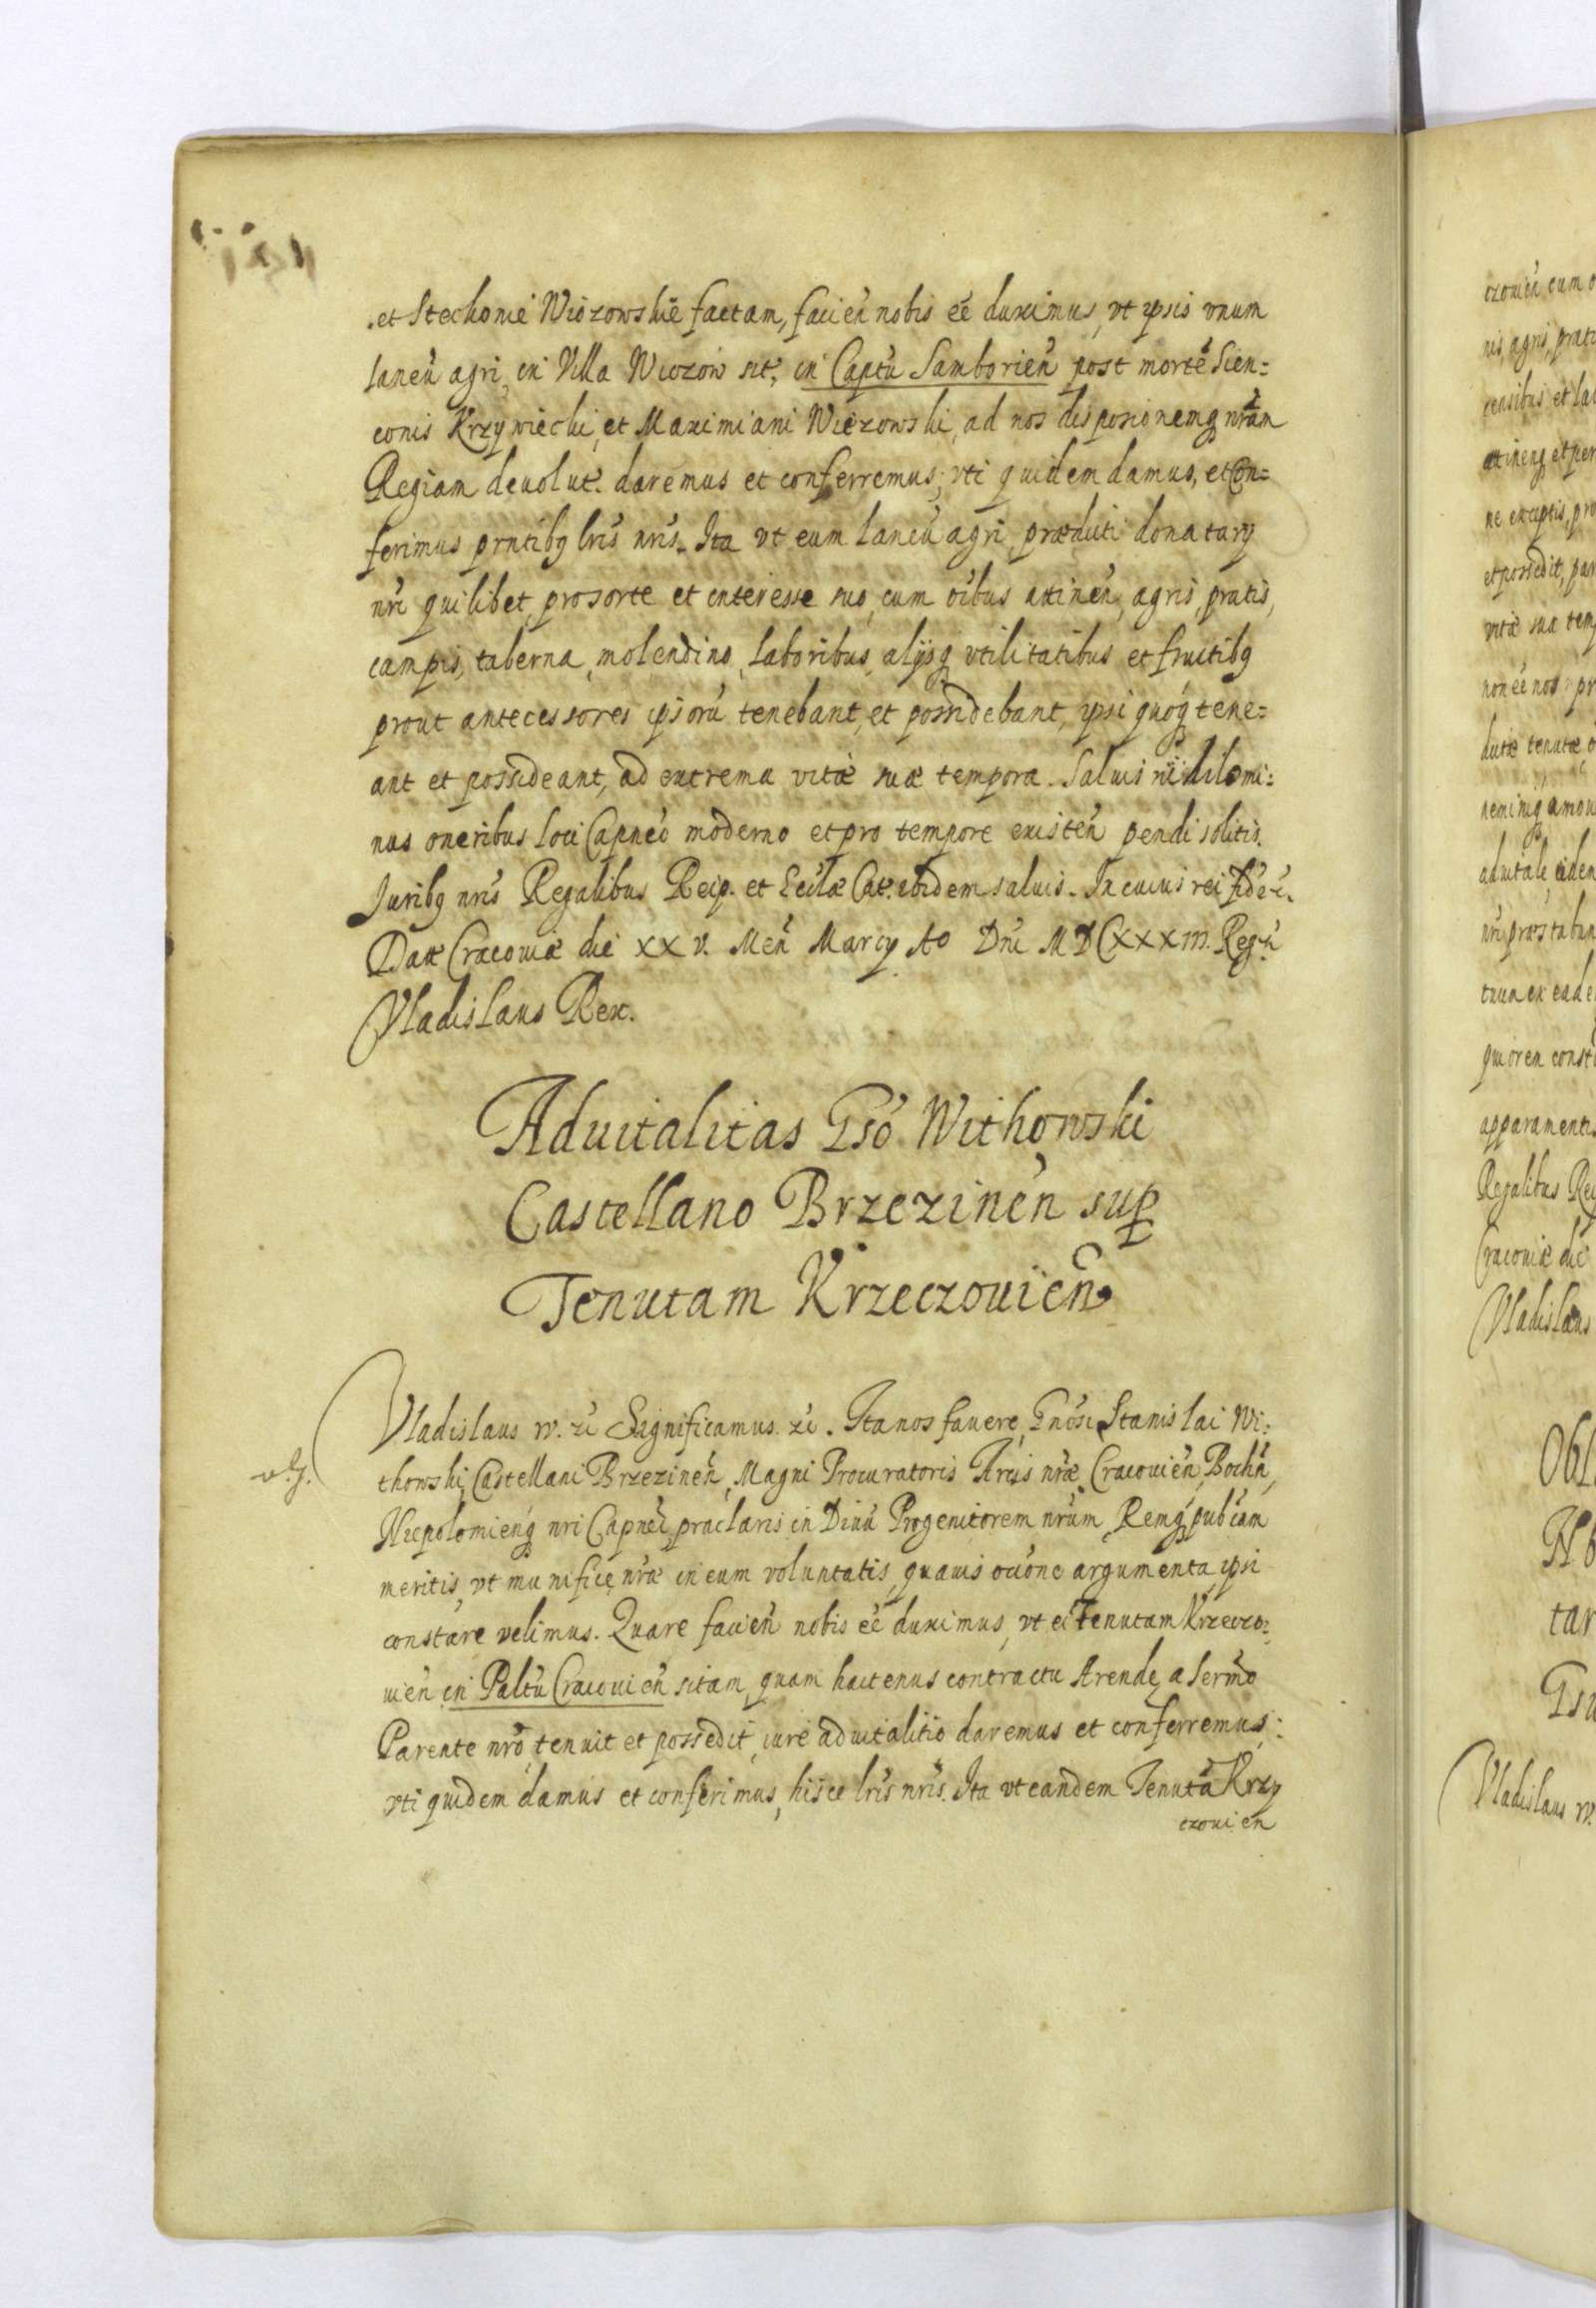 et Stechonie Wiozowskie factam, facień nobis eē duximus, vt ipsis vnum
laneū agri, in Villa Wiozow sit, in Captū Samborień post mortē Sien=
conis Krzywiecki, et Maximiani Wiezowski, ad nos disposionemq nrām
Regiam deuolut. daremus et conferremus, vti quidem damus, et Con=
ferimus prntibq lrīs nrīs. Ita vt eum laneū agri prædicti donatarij
nrī quilibet, pro sorte et interesse suo, cum oībus attineń, agris, pratis,
campis, taberna, molendino, laboribus, alijsq vtilitatibus et fructibq
prout antecessores ipsorū tenebant, et possidebant, ipsi quoq tene=
ant et possideant, ad extrema vitæ suæ tempora. Saluis nihilomi=
nus oneribus loci Capneo moderno et pro tempore existeń pendi solitis.
Juribq nrīs Regalibus Reip. et Eccłæ Cat. ibidem saluis. In cuius rei fid. ē.
Dat Cracouiæ die XXV. Meń Marcij Ao Dnī MDCXXXIII. Reg. ē
Vladislaus Rex.
Aduitalitas Gsō Withowski
Castellano Brzezineń sup
Tenutam Krzeczouień
Vladislaus IV. zc Significamus. zc. Ita nos fauere, Gnōsi Stanislai Wi=
thowski, Castellani Brzezineń, Magni Procuratoris Arcis nræ Cracouień, Bochń,
Niepolomieńq nri Capnei, præclaris in Diuū Progenitorem nrūm, Remq pubcam
meritis, vt munificę nræ in eum voluntatis, quauis ocione argumenta ipsi
constare velimus. Quare facień nobis eē duximus, vt ei Tenutam Krzeczo=
uień in Paltū Cracouień sitam, quam hactenus contractu Arendę a Sermo
Parente nrō tenuit et possedit, iure aduitalitio daremus et conferremus,
vti quidem damus et conferimus, hisce lrīs nrīs. Ita vt eandem Tenutā Krzy
czouień